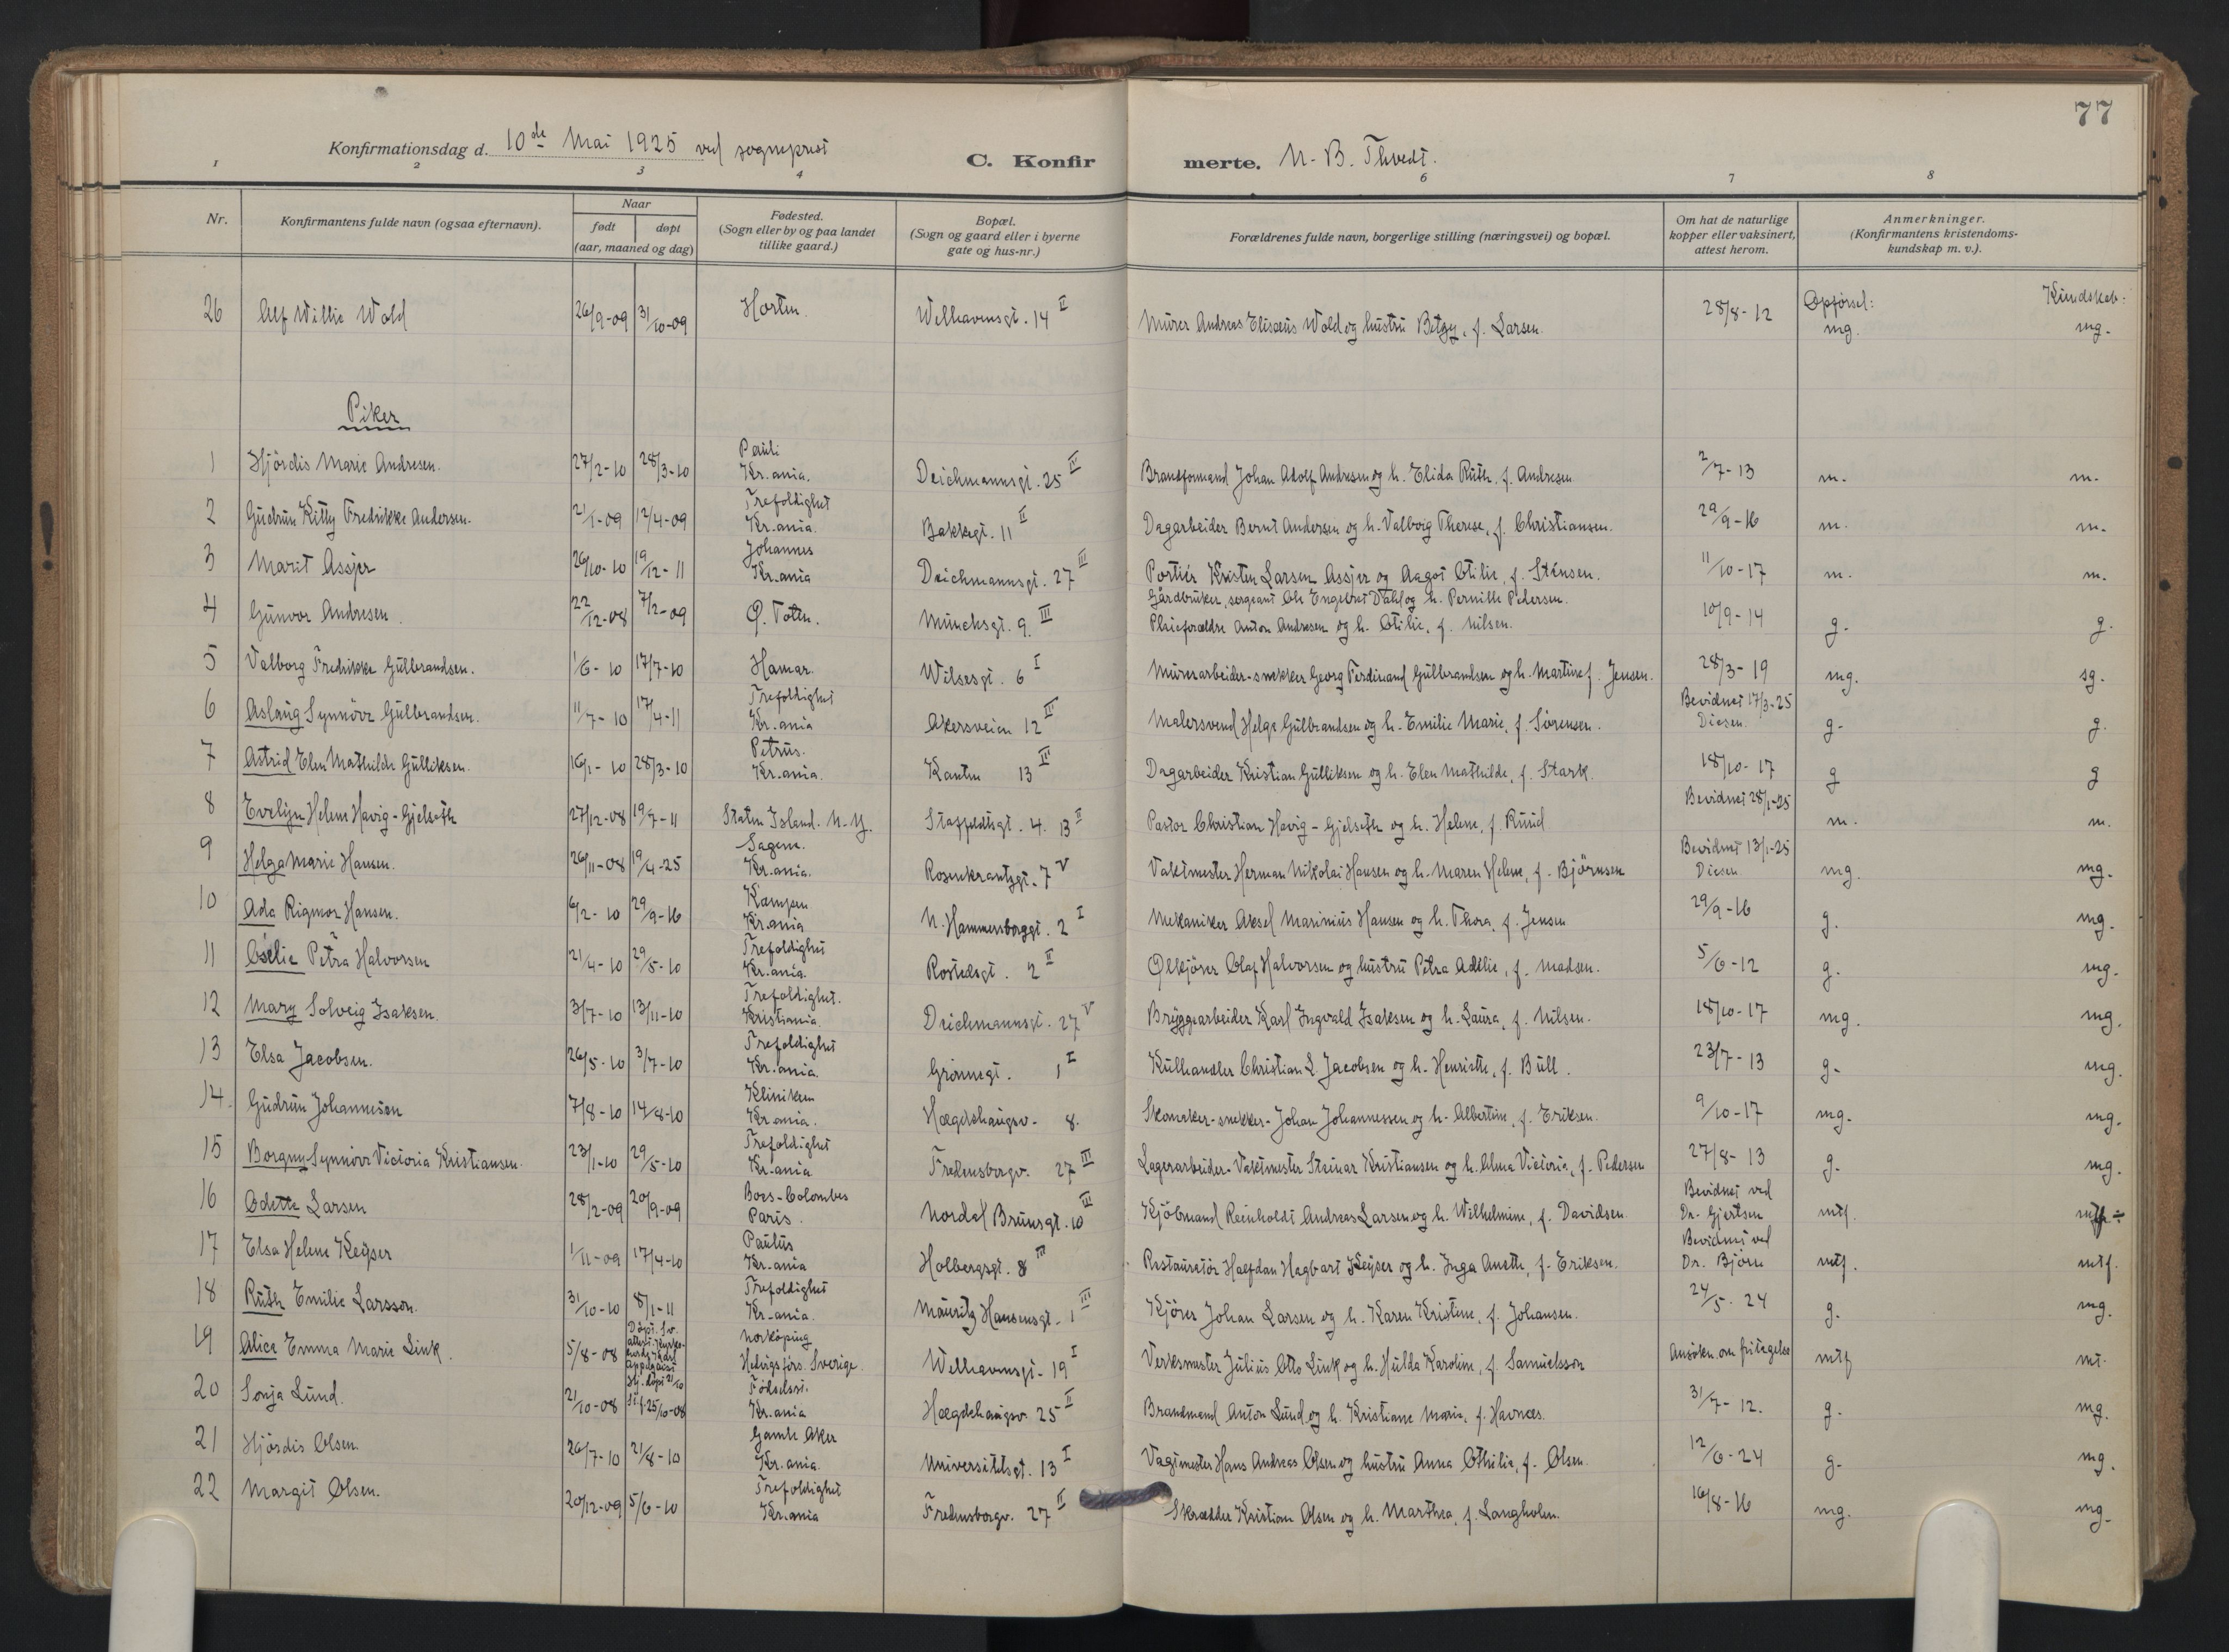 77
Konfirmationsdag d. 10de Mai 1925 ved sogneprest C. Konfirmerte. N. B. Thvedt.
1 2 3 4 6 7 8
Nr. Konfirmantens fulde navn (ogsaa efternavn). Naar født døpt (aar, maaned og dag) Fødested. (Sogn eller by og paa landet tillike gaard.) Bopæl. (Sogn og gaard eller i byerne gate og hus-nr.) Forældrenes fulde navn, borgerlige stilling (næringsvei) og bopæl. Om hat de naturlige kopper eller vaksinert, attest herom. Anmerkninger. (Konfirmantens kristendomskundskap m. v.).
Opførsel: Kundskab:
26 Alf Willie Wold 26/9-09 31/10-09 Horten. Welhavensgt. 14 II Murer Andreas Elisæus Wold og hustru Betzy, f. Larsen. 28/8-12 mg. mg.
Piker
1 Hjördis Marie Andresen. 27/2-10 28/3-10 Pauli Kr.ania. Deichmannsgt. 25 IV Brandformand Johan Adolf Andresen og h. Elida Ruth, f. Andresen 2/7-13 m. m.
2 Gudrun Kitty Fredrikke Andersen. 21/1-09 12/4-09 Trefoldighet Kr.ania. Bakkegt. 11 II Dagarbeider Bernt Andersen og h. Valborg Therese, f. Christiansen. 29/9-16 m. m.
3 Marit Assjer 26/10-10 19/12-11 Johannes Kr.ania Deichmannsgt. 27 III Portier Kristen Larsen Assjer og Aagot Otilie, f. Stensen. 11/10-17 m. m.
4 Gunvor Andresen. 22/12-08 7/2-09 Ø. Toten. Munchsgt. 9. III Gårdbruker, sergeant Ole Engebret Dahl og h. Pernille Pedersen. Pleieforældre Anton Andresen og h. Otilie, f. Nilsen. 10/9-14 g. g.
5 Valborg Fredrikke Gulbrandsen. 1/6-10 17/7-10 Hamar. Wilsesgt. 6 I Murerarbeider-snekker Georg Ferdinand Gulbrandsen og h. Martine f. Jensen. 28/3-19 mg. sg.
6 Aslaug Synnöve Gulbrandsen. 11/7-10 17/4-11 Trefoldighet Kr.ania Akersveien 12 III Malersvend Helge Gulbrandsen og h. Emilie Marie, f. Sörensen. Bevidnet 17/3-25 Diesen. g. g.
7 Astrid Elen Mathilde Gulliksen. 16/1-10 28/3-10 Petrus. Kr.ania. Kanten 13 IV Dagarbeider Kristian Gulliksen og h. Elen Mathilde, f. Stark. 18/10-17 g g
8 Evelyn Helene Havig-Gjelseth 27/12-08 19/7-11 Staten Island. N.Y. Staffeldtsgt. 4. II Pastor Christian Havig-Gjelseth og h. Helene, f. Ruud Bevidnet 28/1-25 m. m.
9 Helga Marie Hansen. 26/11-08 19/4-25 Sagene. Kr.ania. Rosenkrantzgt. 7 V Vaktmester Herman Nikolai Hansen og h. Maren Helene, f. Björnsen Bevidnet 13/1-25 Diesen mg. mg.
10 Ada Rigmor Hansen. 6/2-10 29/9-16 Kampen Kr.ania N. Hammersborggt. 2 I Mekaniker Aksel Marinius Hansen og h. Thora, f. Jensen 29/9-16 g. mg.
11 Petra Halvorsen 21/4-10 29/5-10 Trefoldighet Kr.ania. Rostedsgt. 2 II Ølkjörer Olaf Halvorsen og hustru Petra Adélie, f. Madsen. 5/6-12 g. mg.
12 Mary Solveig Isaksen. 3/7-10 13/11-10 Trefoldighet. Kristiania. Deichmannsgt. 27 V Bryggearbeider Karl Ingvald Isaksen og h. Laura, f. Nilsen. 18/10-17 mg. mg.
13 Elsa Jacobsen. 26/5-10 3/7-10 Trefoldighet Kr.ania. Grönnegt. 1 I Kulhandler Christian L. Jacobsen og h. Henriette, f. Bull. 23/7-13 g. mg.
14. Gudrun Johannesen 7/8-10 14/8-10 Kliniken Kr.ania. Hægdehaugsv. 8. Skomaker-snekker- Johan Johannessen og h. Albertine, f. Eriksen. 9/10-17 mg. mg.
15 Borgny Synnöve Victoria Kristiansen. 23/1-10 29/5-10 Trefoldighet Kr.ania Fredensborgv. 27 III Lagerarbeider-Vaktmester Steinar Kristiansen og h. Alma Victoria, f. Pedersen 27/8-13 g. mg.
16 Odette Larsen 28/2-09 20/9-09 Bois-Colombes Paris. Nordal Brunsgt. 10 III Kjöbmand Reinholdt Andreas Larsen og h. Wilhelmine, f. Davidsen. Bevidnet ved Dr. Gjertsen mtf.
17 Elsa Helene Keyser 1/11-09 17/4-10 Paulus Kr.ania Holbergsgt. 8 III Restauratör Halfdan Hagbart Keyser og h. Inga Anette, f. Eriksen. Bevidnet ved Dr. Björn mtf. mtf.
18 Ruth Emilie Larsson. 31/10-10 8/1-11 Trefoldighet Kr.ania. Mauritz Hansensgt. 1 III Kjörer Johan Larsen og h. Karen Kristine, f. Johansen. 24/5-24 g. mg.
19 Alice Emma Marie Link. 5/8-08 Norköping Hedvigs förs. Sverige. Welhavensgt. 19 I Verksmester Julius Otto Link og h. Hulda Karolin, f. Samuelsson Ansökn. om fritagelse mtf mt.
20 Sonja Lund. 21/10-08 25/10-08 Födselsst. Kr.ania Hægdehaugsv. 25 II Brandmand Anton Lund og h. Kristiane Marie, f. Havnæs. 31/7-12. g. mg.
21 Hjördis Olsen. 26/7-10 21/8-10 Gamle Aker Kr.ania. Universitetsgt. 13 I Vagtmester Hans Andreas Olsen og hustru Anna Othilie, f. Olsen. 12/6-24 g. mg.
22 Margit Olsen. 20/12-09 5/6-10 Trefoldighet Kr.ania Fredensborgv. 27 II Skrædder Kristian Olsen og h. Marthea, f. Langholen. 16/8-16 mg. mg.